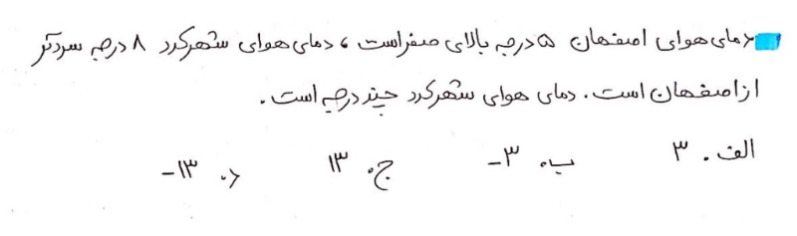 دمای هوای اصفهان ۵ درجه بالای صفر است ، دمای هوای شهرکرد ۸ درجه سردتر
از اصفهان است . دمای هوای شهرکرد چند درجه است .
الف . ۳ ب . ۳- ج . ۱۳ د . ۱۳-